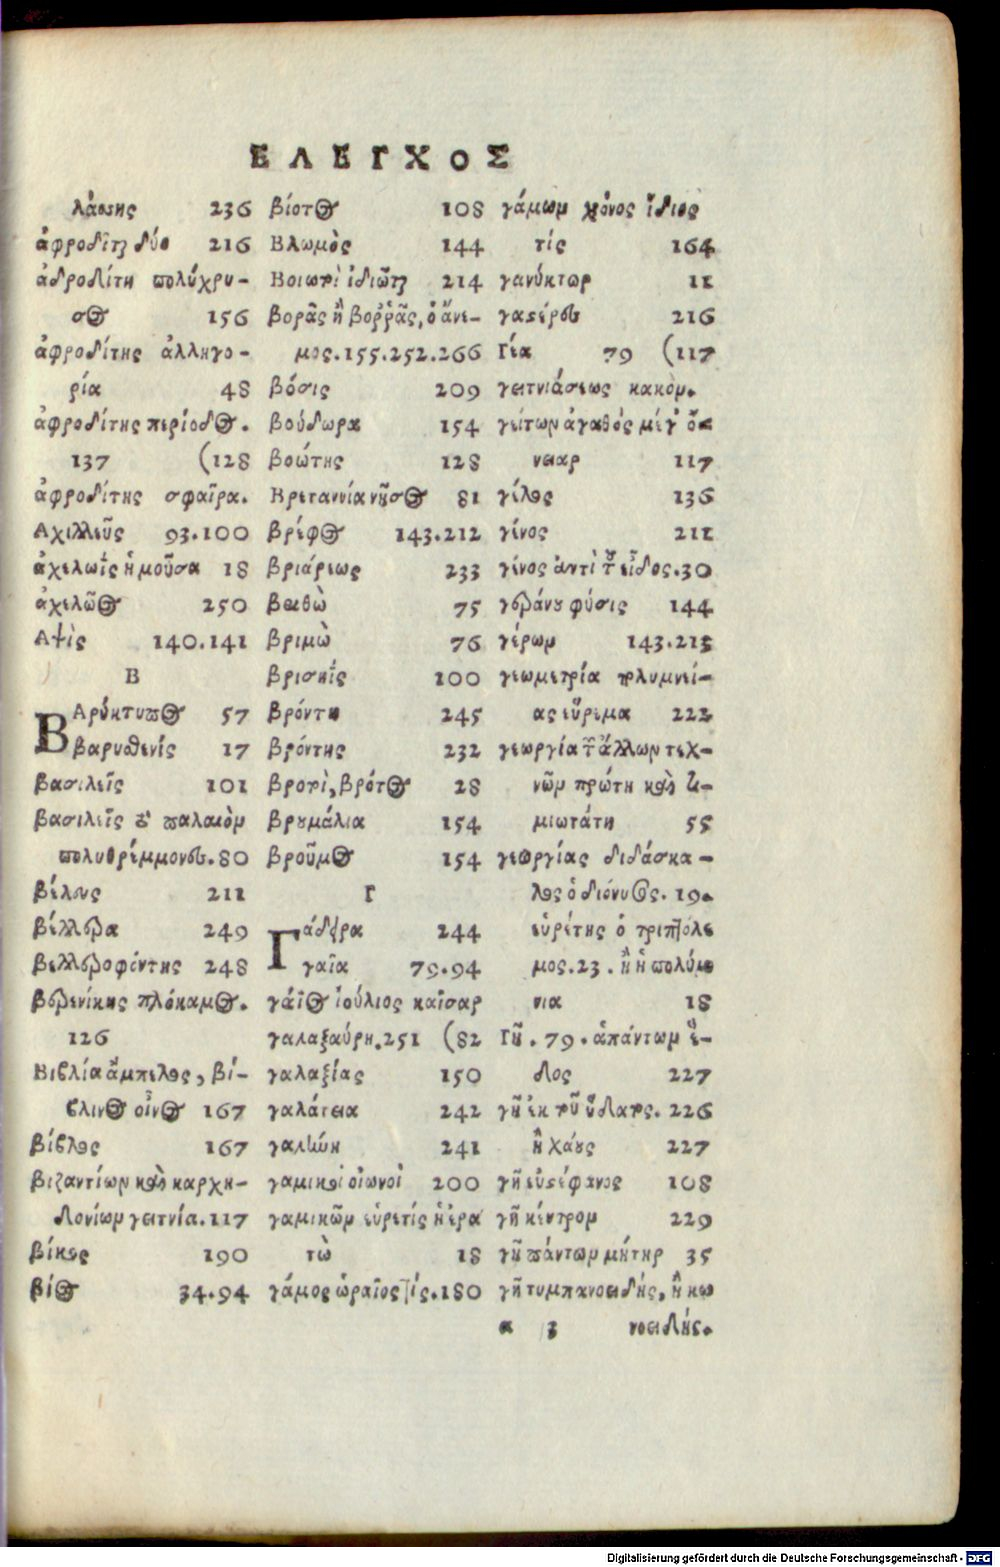 ΕΛΕΓΧΟΣ
λάσσης 236
ἀφροδίτη δύο 216
ἀδροδίτη πολύχρυ-
σος 156
ἀφροδίτης ἀλληγο-
ρία 48
ἀφροδίτης περίοδος.
137 (128
ἀφροδίτης σφαῖρα.
Αχιλλεῦς 93.100
ἀχελωΐς ἡ μοῦσα 18
ἀχελῶος 250
Αψὶς 140.141
Β
ΒΑρύκτυπος 57
βαρυσθενής 17
βασιλεῖς 101
βασιλεῖς οἱ παλαιὸμ
πολυθρέμμονες.80
βέλους 211
βέλλερα 249
βελλεροφόντης 248
βερενίκης πλόκαμος.
126
Βιβλία ἄμπελος, βί-
βλινος οἶνος 167
βίβλος 167
βιζαντίωρ καὶ καρχη-
δονίωμ γειτνία.117
βίκος 190
βίος 34.94
βίοτος 108
Βλωμὸς 144
Βοιωτοὶ ἰδιῶται 214
βορᾶς ἢ βοῤῥᾶς, ὁ ἄνε-
μος.155.252.266
βόσις 209
βούδωρα 154
βοώτης 128
Βρεταννία νῆσος 81
βρέφος 143.212
βριάρεως 233
βριθὼ 75
βριμὼ 76
βρισηῒς 100
βρόντη 245
βρόντης 232
βροτοὶ, βρότος 28
βρυμάλια 154
βροῦμος 154
Γ
Γάδειρα 244
γαῖα 79.94
γάϊος ἰούλιος καῖσαρ
γαλαξαύρη.251 (82
γαλαξίας 150
γαλάτεια 242
γαλήνη 241
γαμικοὶ οἰωνοὶ 200
γαμικῶμ εὑρετίς ἡ ἐρα
τὼ 18
γάμος ὡραῖος τίς.180
γάμωμ χρόνος ἴδιος
τίς 164
γανύκτωρ 11
γαστέρες 216
Γέα 79 (117
γειτνιάσεως κακὸμ.
γείτων ἀγαθὸς μέγ᾽ ὄ-
νειαρ 117
γέλος 136
γένος 211
γένος ἀντὶ τοῦ εἶδος.30
γεράνου φύσις 144
γέρωμ 143.215
γεωμετρία πολυμνεί-
ας εὕρεμα 222
γεωργία τῶν ἄλλωμ τεχ-
νῶμ πρώτη καὶ τι-
μιωτάτη 55
γεωργίας διδάσκα-
λος ὁ διόνυσος. 19.
εὑρέτης ὁ τριπτόλε
μος.23. ἢ ἡ πολύμ
νια 18
Γῆ. 79. ἁπάντωμ ἕ-
δος 227
γῆ ἐκ τοῦ ὕδατος. 226
ἢ χάους 227
γῆ εὐστέφανος 108
γῆ κέντρομ 229
γῆ πάντωμ μήτηρ 35
γῆ τυμπανοειδής, ἢ κω
α 3 νοειδής.
Digitalisierung gefördert durch die Deutsche Forschungsgemeinschaft - DFG